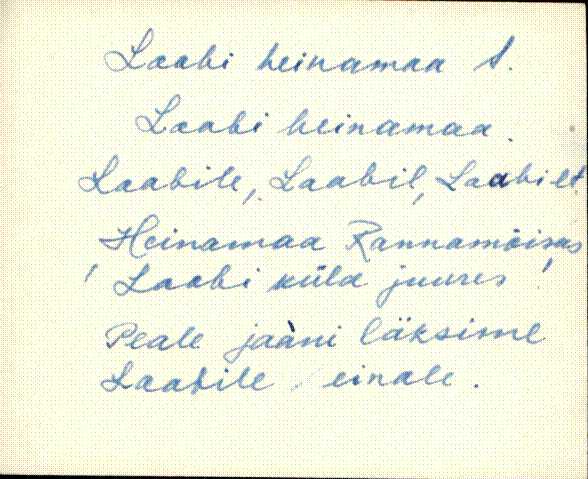 Laabi heinamaa S.
Laabi heinamaa.
Laabile, Laabil, Laabilt.
Heinamaa Rannamõisas
Laabi küla juures!
Peale jaani läksime
Laabile einale.